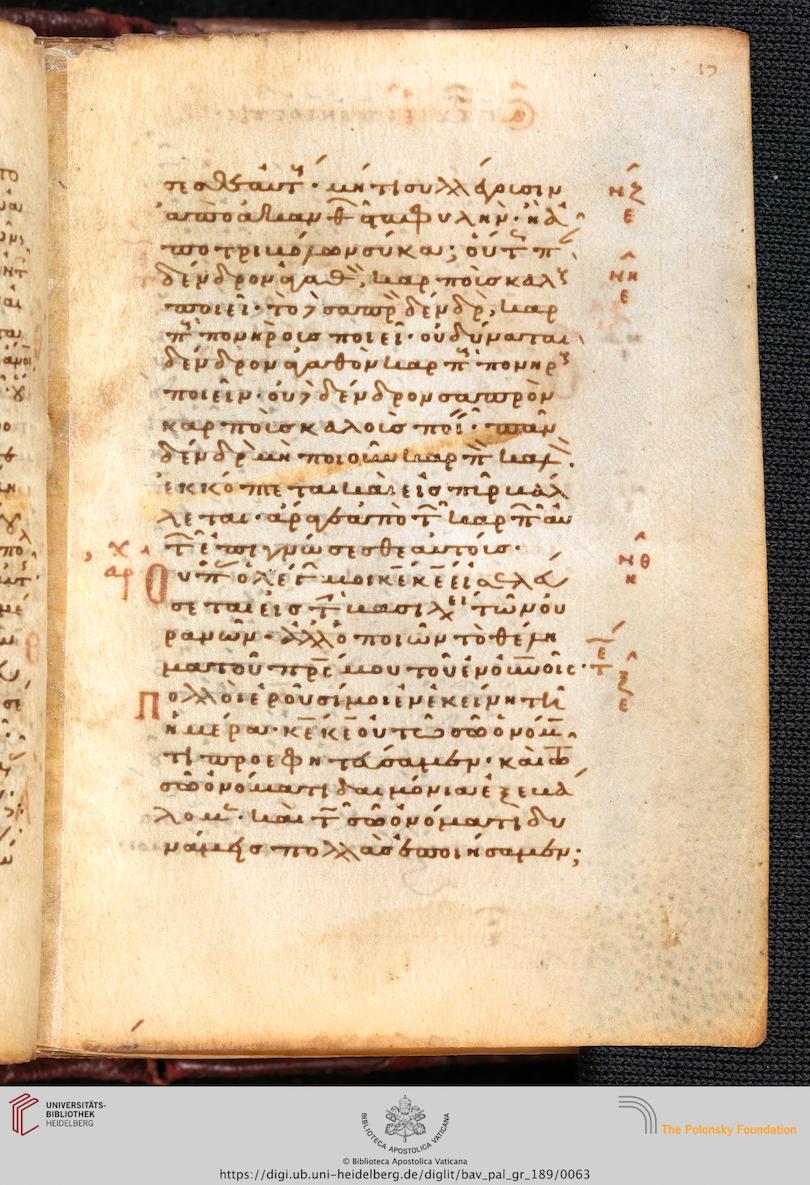 17
πεσθε αὐτ· μήτι συλλέγουσιν
ἀπὸ ἀκανθ σταφυλὴν· ἢ ἀ
πὸ τριβόλων σῦκα; οὕτ π
δένδρον ἀγαθ, καρποὺς καλ
ποιεῖ· τὸ δὲ σαπρ δένδρ, καρ
π πονηροὺς ποιεῖ· οὐ δύναται
δένδρον ἀγαθὸν καρπ πονηρ
ποιεῖν· οὐδὲ δένδρον σαπρὸν
καρποὺς καλοὺς ποιεῖ· πᾶν
δένδρ μὴ ποιοῦν καρπ καλ·
ἐκκόπτεται καὶ εἰς πῦρ βάλ
λεται· ἄραγε ἀπὸ τ καρπ αὐ
τ ἐπιγνώσεσθε αὐτούς·
Οὐ π ὁ λέγ μοι κ̅ε̅ κ̅ε̅ εἰσελεύ
σεται εἰς τ βασιλεί τῶν οὐ
ρανῶν· ἀλλ ὁ ποιῶν τὸ θέλη
μα τοῦ π̅ρ̅ς̅ μου τοῦ ἐν οὐ̅ν̅οῖς·
Πολλοὶ ἐροῦσί μοι ἐν ἐκείνη τῆ
ἡμέρα· κ̅ε̅ κ̅ε̅ οὐ τῶ σῶ ὀνόμα
τι προεφητεύσαμεν· καὶ τῶ
σῶ ὀνόματι δαιμόνια ἐξεβά
λομ· καὶ τ σῶ ὀνόματι δυ
νάμεις πολλὰς ἐποιήσαμεν;
νζ
ε
νη
ε
νθ
η
ξ
ε
χ
αρ
UNIVERSITÄTS-
BIBLIOTHEK
HEIDELBERG
BIBLIOTECA APOSTOLICA VATICANA
© Biblioteca Apostolica Vaticana
The Polonsky Foundation
https://digi.ub.uni-heidelberg.de/diglit/bav_pal_gr_189/0063